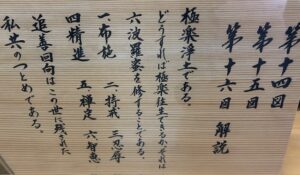 第十四図
第十五図
第十六図 解説
極楽浄土である。
どうすれば極楽往生できるか、それは
六波羅蜜を修することである。
一、布施 二、持戒 三、忍辱
四、精進 五、禅定 六、智恵
追善回向はこの世に残された
私共のつとめである。